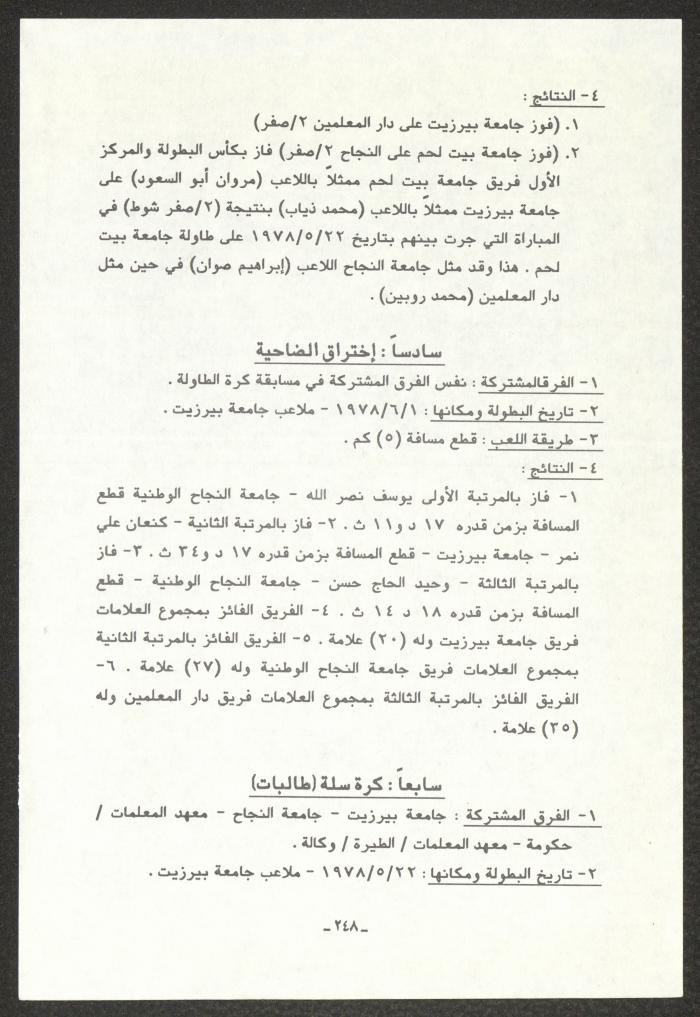 ٤- النتائج :
١. (فوز جامعة بيرزيت على دار المعلمين ٢/صفر)
٢. (فوز جامعة بيت لحم على النجاح ٢/صفر) فاز بكأس البطولة والمركز
الأول فريق جامعة بيت لحم ممثلاً باللاعب (مروان أبو السعود) على
جامعة بيرزيت ممثلاً باللاعب (محمد ذياب) بنتيجة (٢/صفر شوط) في
المباراة التي جرت بينهم بتاريخ ١٩٧٨/٥/٢٢ على طاولة جامعة بيت
لحم . هذا وقد مثل جامعة النجاح اللاعب (إبراهيم صوان) في حين مثل
دار المعلمين (محمد روبين) .
سادساً : إختراق الضاحية
١- الفرقالمشتركة : نفس الفرق المشتركة في مسابقة كرة الطاولة .
٢- تاريخ البطولة ومكانها : ١٩٧٨/٦/١ - ملاعب جامعة بيرزيت .
٣- طريقة اللعب : قطع مسافة (٥) كم .
٤- النتائج :
١- فاز بالمرتبة الأولى يوسف نصر الله - جامعة النجاح الوطنية قطع
المسافة بزمن قدره ١٧ د و١١ ث . ٢- فاز بالمرتبة الثانية - كنعان علي
نمر - جامعة بيرزيت - قطع المسافة بزمن قدره ١٧ د و٣٤ ث . ٣- فاز
بالمرتبة الثالثة - وحيد الحاج حسن - جامعة النجاح الوطنية - قطع
المسافة بزمن قدره ١٨ د ١٤ ث . ٤- الفريق الفائز بمجموع العلامات
فريق جامعة بيرزيت وله (٢٠) علامة . ٥- الفريق الفائز بالمرتبة الثانية
بمجموع العلامات فريق جامعة النجاح الوطنية وله (٢٧) علامة . ٦-
الفريق الفائز بالمرتبة الثالثة بمجموع العلامات فريق دار المعلمين وله
(٣٥) علامة .
سابعاً : كرة سلة (طالبات)
١- الفرق المشتركة : جامعة بيرزيت - جامعة النجاح - معهد المعلمات /
حكومة - معهد المعلمات / الطيرة / وكالة .
٢- تاريخ البطولة ومكانها : ١٩٧٨/٥/٢٢ - ملاعب جامعة بيرزيت .
-٢٤٨-